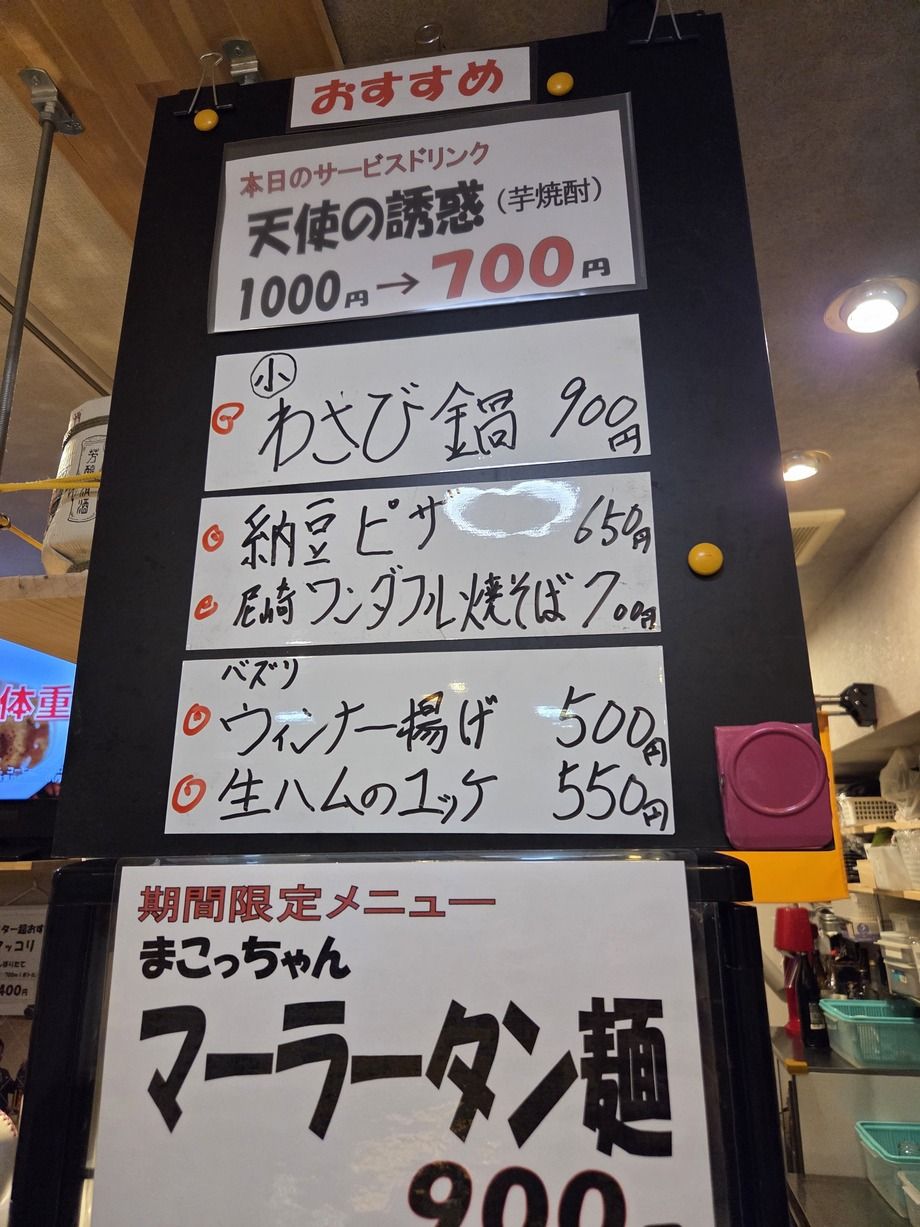 おすすめ
本日のサービスドリンク
天使の誘惑(芋焼酎)
1000円→700円
小
わさび鍋 900円
納豆ピザ 650円
尼崎ワンダフル焼そば 700円
バズリ
ウィンナー揚げ 500円
生ハムのユッケ 550円
期間限定メニュー
まこっちゃん
マーラータン麺
900
体重
マッコリ
400円